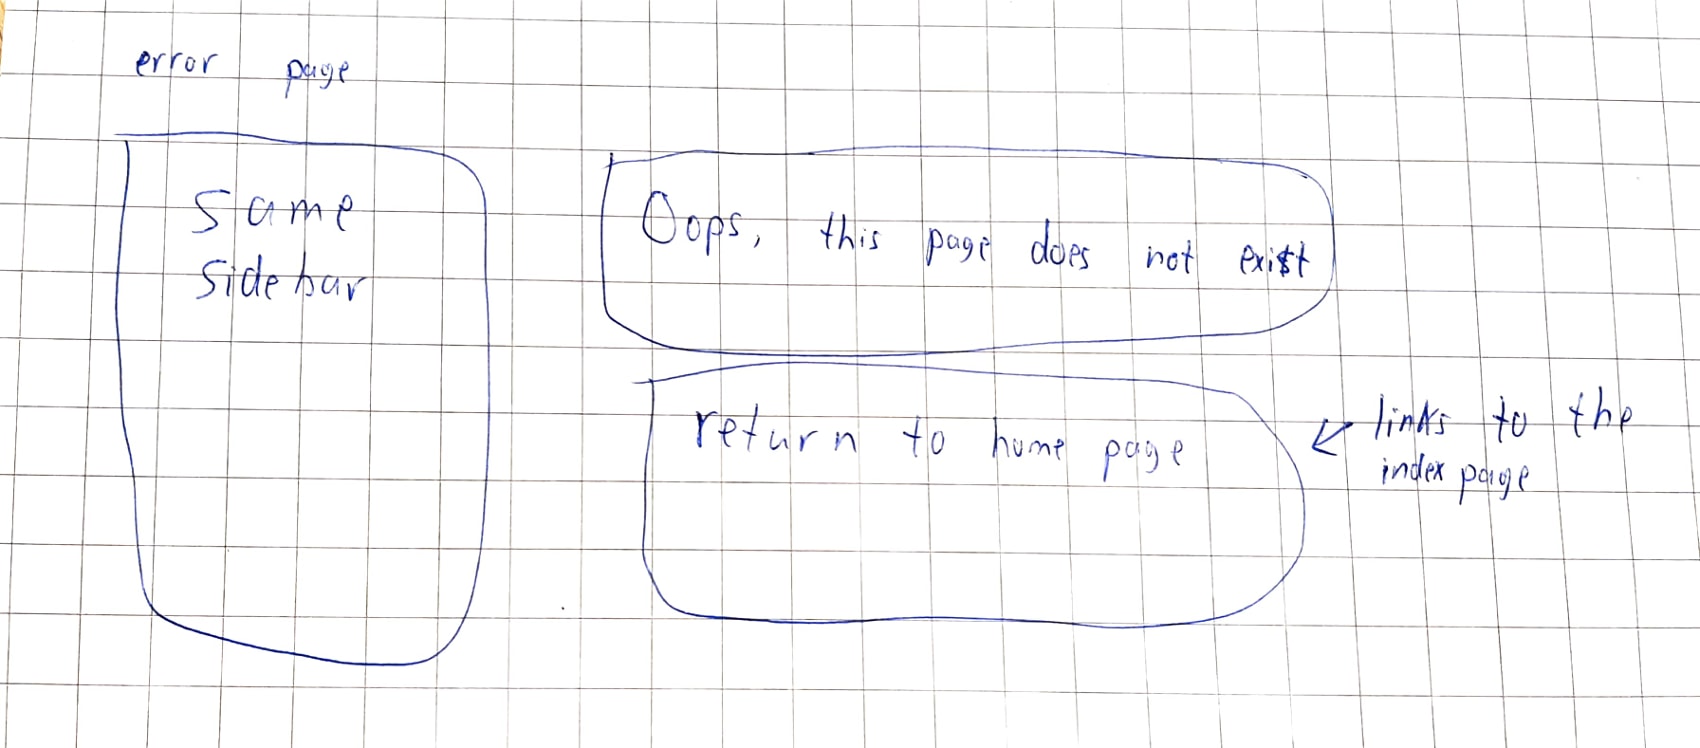 error page
same
sidebar
Oops, this page does not exist
return to home page
links to the
index page